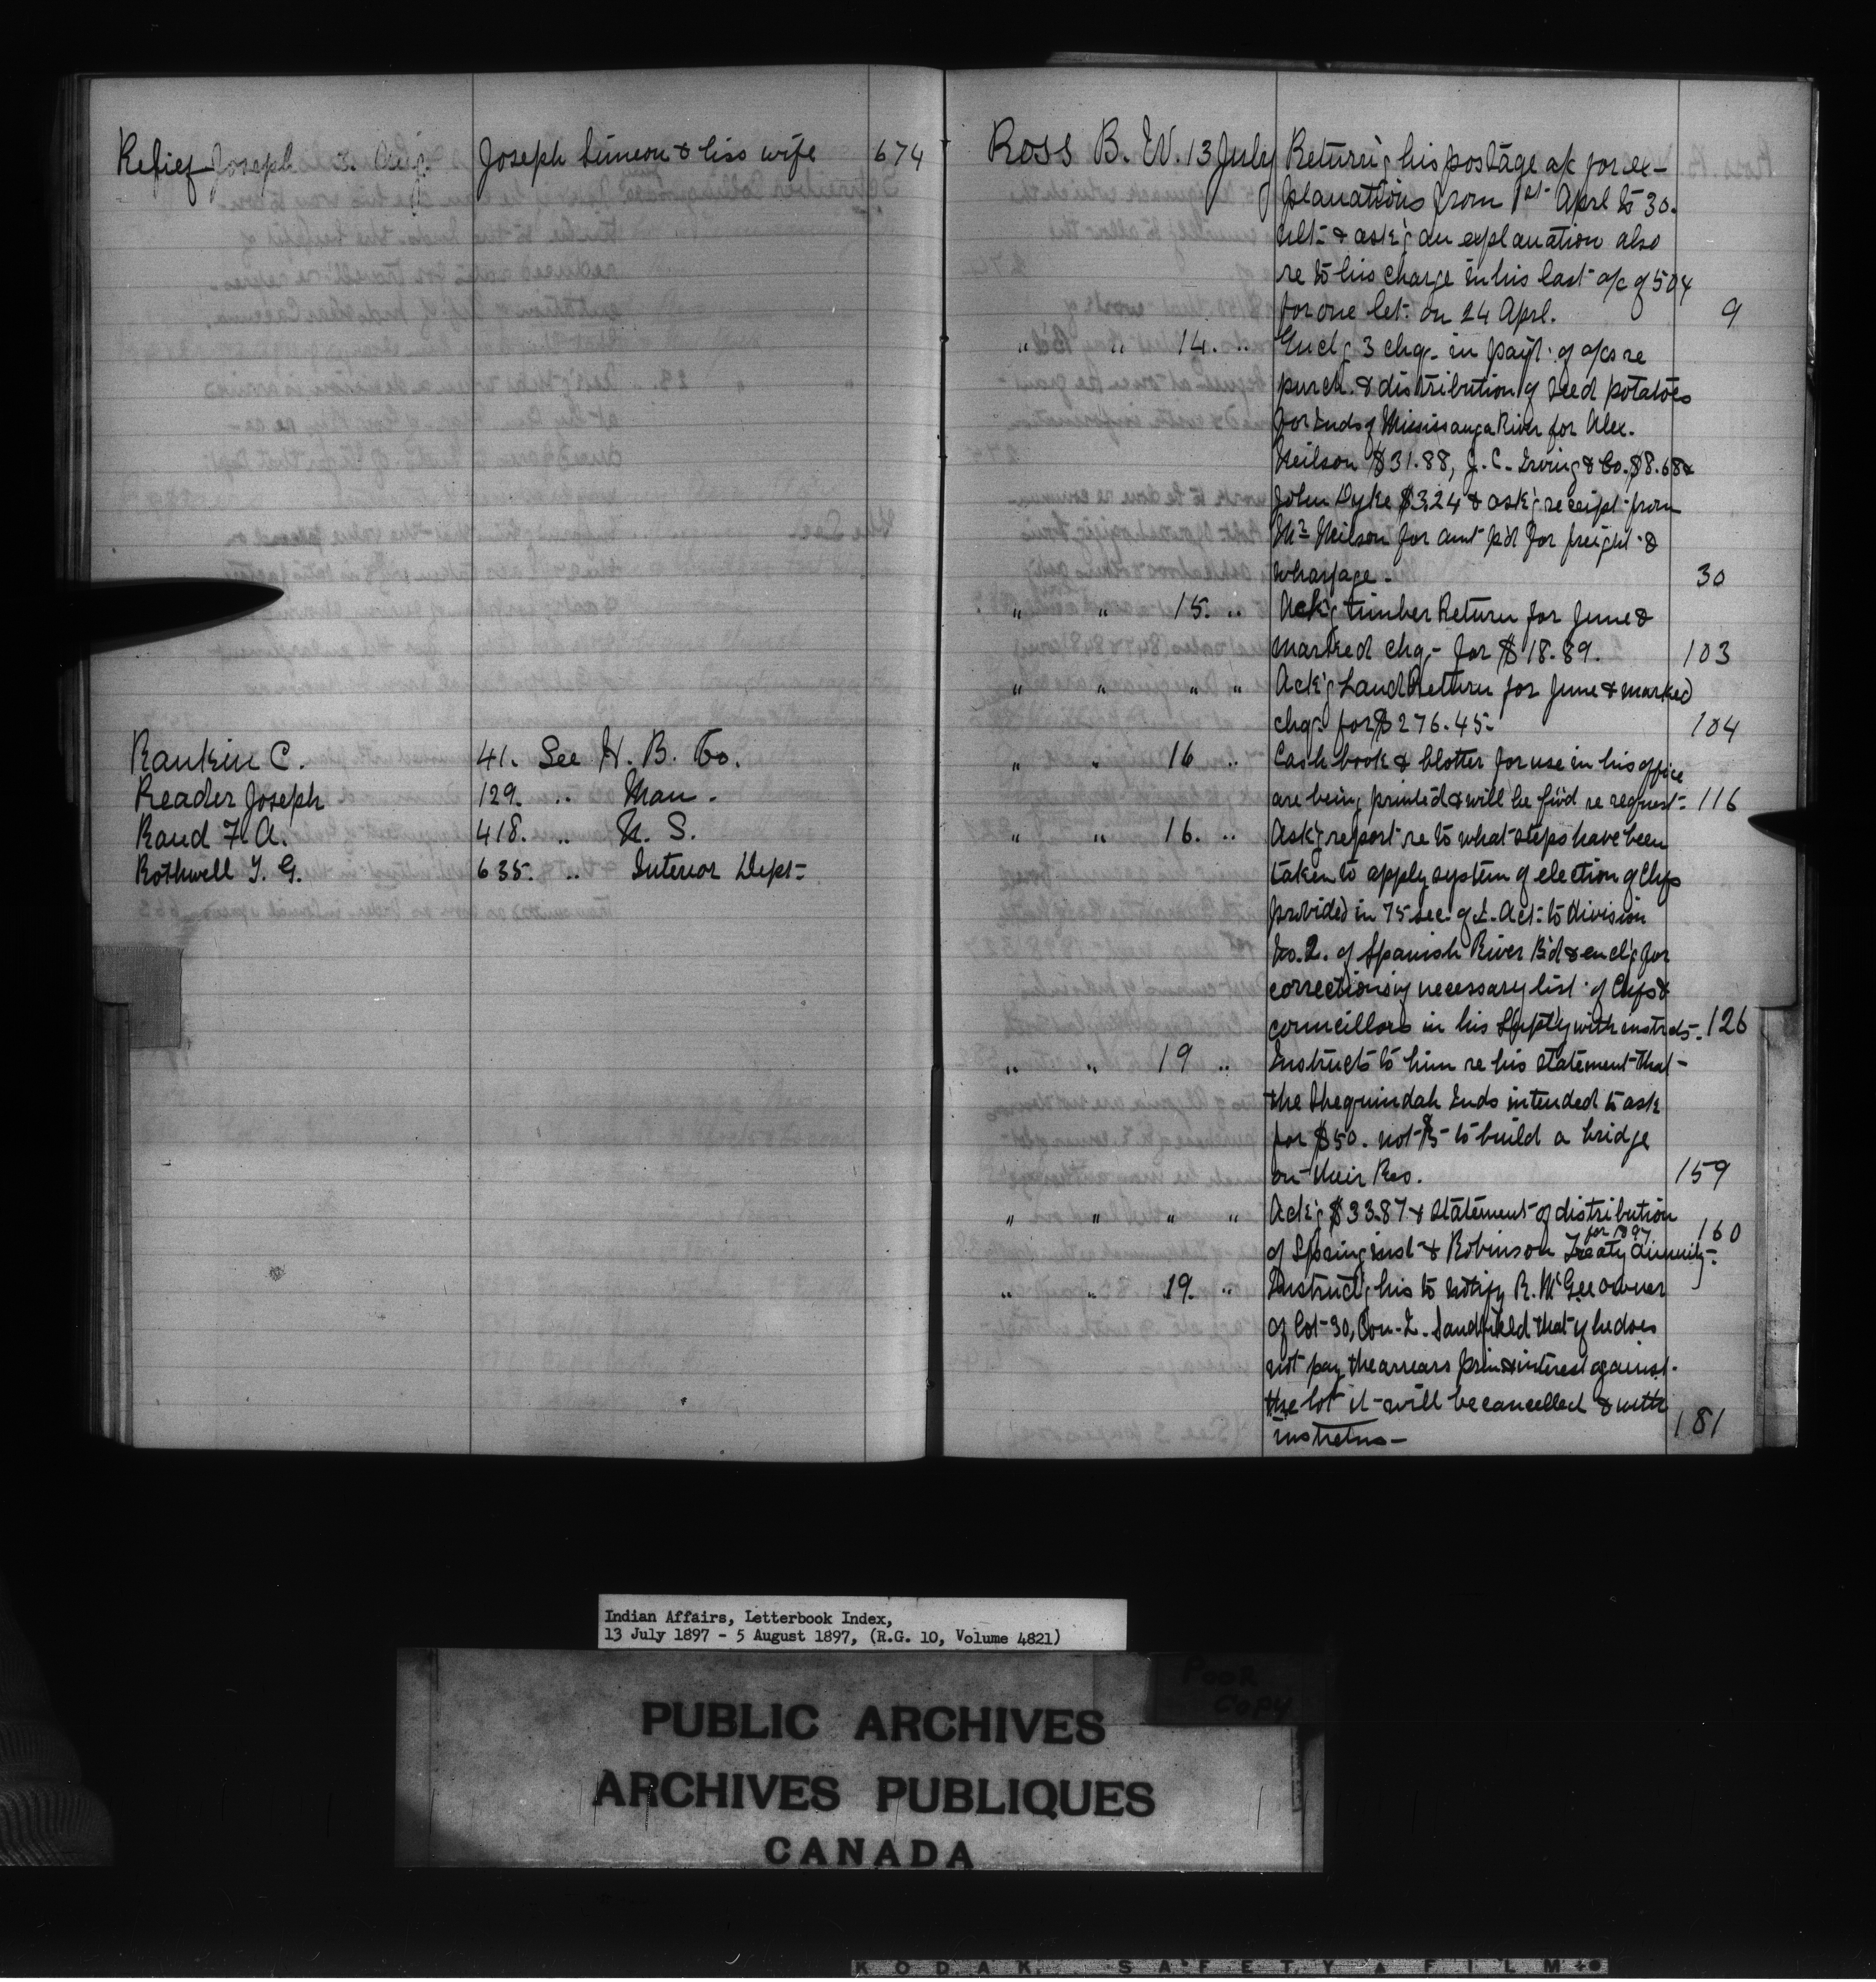 Relief Joseph 3. Aug. Joseph Simeon & his wife 674
Rankin C. 41. See H. B. Co.
Reader Joseph 129. " Man.
Rand F. A. 418. " N. S.
Rothwell T. G. 635. " Interior Dept.
Ross B. W. 13 July Returng his postage a/c for ex-
planations from 1st April to 30.
ult. & ask'g an explanation also
re to his charge in his last a/c of 50¢
for one let. on 24 Aprl. 9
" " 14. " Encl'g 3 chq. in payt. of a/cs re
purch. & distribution of seed potatoes
for Inds of Mississauga River for Alex.
Neilson $31.88, J. C. Irving & Co. $8.68 &
John Dyke $3.24 & ask'g receipt from
Mr Neilson for amt p'd for freight &
wharfage. 30
" " 15. " Ack'g timber Return for June &
marked chq. for $18.89. 103
" " " " Ack'g Land Return for June & marked
chq. for $276.45. 104
" " 16 " Cash book & blotter for use in his office
are being printed & will be f'w'd re request. 116
" " 16. " Ask'g report re to what steps have been
taken to apply system of election of Chfs
provided in 75 sec. of I. Act. to division
No. 2. of Spanish River B'd & encl'g for
corrections if necessary list of Chfs &
councillors in his Supt'y with instrcts. 126
" " 19 " Instructs to him re his statement that
the Sheguindah Inds intended to ask
for $50. not $5 to build a bridge
on their Res. 159
" " " " Ack'g $33.87 & statement of distribution
of Spring inst & Robinson Treaty Annuity for 1897. 160
" " 19. " Instruct'g his to notify R. McGee owner
of Lot 30, Con. 2. Sandfield that if he does
not pay the arrears prin & interest against
the lot it will be cancelled & with
instrctns. 181
Indian Affairs, Letterbook Index,
13 July 1897 - 5 August 1897, (R.G. 10, Volume 4821)
POOR
COPY
PUBLIC ARCHIVES
ARCHIVES PUBLIQUES
CANADA
KODAK SAFETY FILM